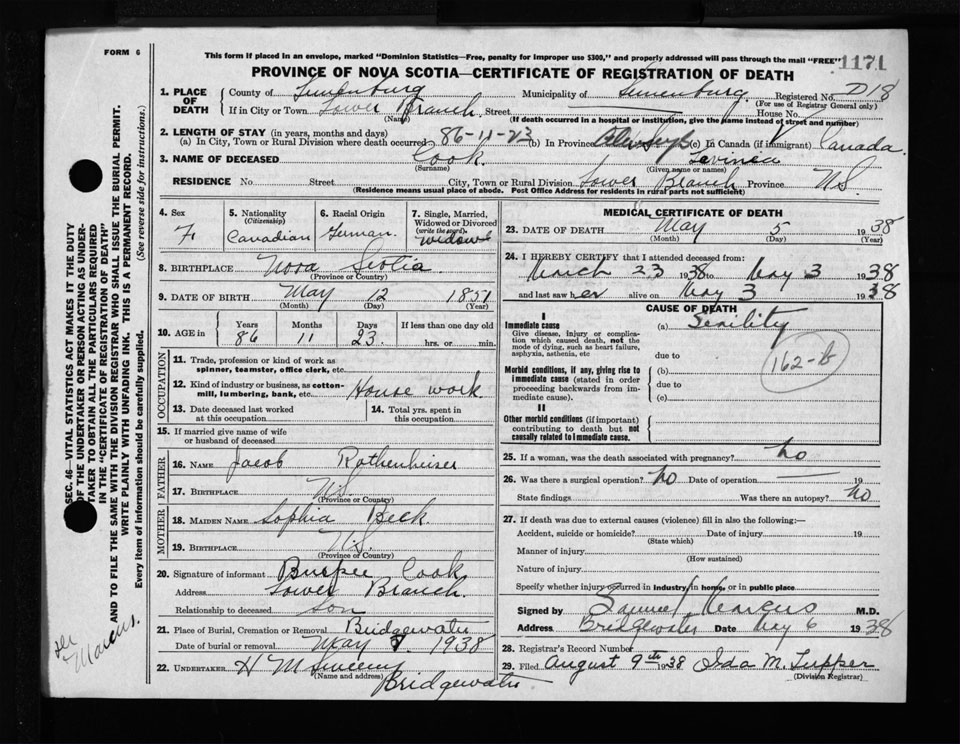 FORM 6
This form if placed in an envelope, marked "Dominion Statistics—Free, penalty for improper use $300," and properly addressed will pass through the mail "FREE"
1171
PROVINCE OF NOVA SCOTIA—CERTIFICATE OF REGISTRATION OF DEATH
1. PLACE OF DEATH
County of Lunenburg Municipality of Lunenburg Registered No. D18
(For use of Registrar General only)
If in City or Town Lower Branch Street House No.
(Name) (If death occurred in a hospital or institution, give the name instead of street and number)
2. LENGTH OF STAY (in years, months and days)
(a) In City, Town or Rural Division where death occurred 86-11-23 (b) In Province (c) In Canada (if immigrant) Canada
3. NAME OF DECEASED Cook Lavinia
(Surname) (Given name or names)
RESIDENCE No Street City, Town or Rural Division Lower Branch Province N.S.
(Residence means usual place of abode. Post Office Address for residents in rural parts not sufficient)
4. Sex
F
5. Nationality
(Citizenship)
Canadian
6. Racial Origin
German
7. Single, Married, Widowed or Divorced
(write the word)
Widow
8. BIRTHPLACE Nova Scotia
(Province or Country)
9. DATE OF BIRTH May 12 1851
(Month) (Day) (Year)
10. AGE in
Years Months Days If less than one day old
86 11 23. hrs. or min.
OCCUPATION
11. Trade, profession or kind of work as spinner, teamster, office clerk, etc.
12. Kind of industry or business, as cotton-mill, lumbering, bank, etc. House work
13. Date deceased last worked at this occupation
14. Total yrs. spent in this occupation
15. If married give name of wife or husband of deceased
FATHER
16. NAME Jacob Rothenheizer
17. BIRTHPLACE N.S.
(Province or Country)
MOTHER
18. MAIDEN NAME Sophia Beck
19. BIRTHPLACE N.S.
(Province or Country)
20. Signature of informant Burpee Cook
Address Lower Branch.
Relationship to deceased Son
21. Place of Burial, Cremation or Removal Bridgewater
Date of burial or removal May 7 1938
22. UNDERTAKER H M Sweeny
(Name and address)
Bridgewater
MEDICAL CERTIFICATE OF DEATH
23. DATE OF DEATH May 5 1938
(Month) (Day) (Year)
24. I HEREBY CERTIFY that I attended deceased from:
March 23 1938 to May 3 1938
and last saw her alive on May 3 1938
CAUSE OF DEATH
I
Immediate cause
Give disease, injury or complication which caused death, not the mode of dying, such as heart failure, asphyxia, asthenia, etc
(a) Senility
due to
162-b
Morbid conditions, if any, giving rise to immediate cause (stated in order proceeding backwards from immediate cause).
(b)
due to
(c)
II
Other morbid conditions (if important) contributing to death but not causally related to immediate cause.
25. If a woman, was the death associated with pregnancy? no
26. Was there a surgical operation? no Date of operation — 19
State findings Was there an autopsy? no
27. If death was due to external causes (violence) fill in also the following:—
Accident, suicide or homicide? Date of injury 19
(State which)
Manner of injury
(How sustained)
Nature of injury
Specify whether injury occurred in industry, in home, or in public place
Signed by Samuel Marcus M.D.
Address Bridgewater Date May 6 1938
28. Registrar's Record Number
29. Filed August 9th 1938 Ida M. Tupper
(Division Registrar)
SEC. 46—VITAL STATISTICS ACT MAKES IT THE DUTY
OF THE UNDERTAKER OR PERSON ACTING AS UNDER-
TAKER TO OBTAIN ALL THE PARTICULARS REQUIRED
IN THE "CERTIFICATE OF REGISTRATION OF DEATH"
AND TO FILE THE SAME WITH THE DIVISION REGISTRAR WHO SHALL ISSUE THE BURIAL PERMIT.
WRITE PLAINLY WITH UNFADING INK. THIS IS A PERMANENT RECORD.
Every item of information should be carefully supplied. (See reverse side for instructions.)
Marcus.